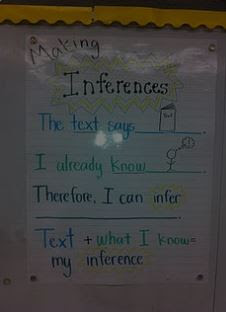 Making
Inferences
The text says .
I already know .
Therefore, I can infer
.
Text + what I know=
my inference